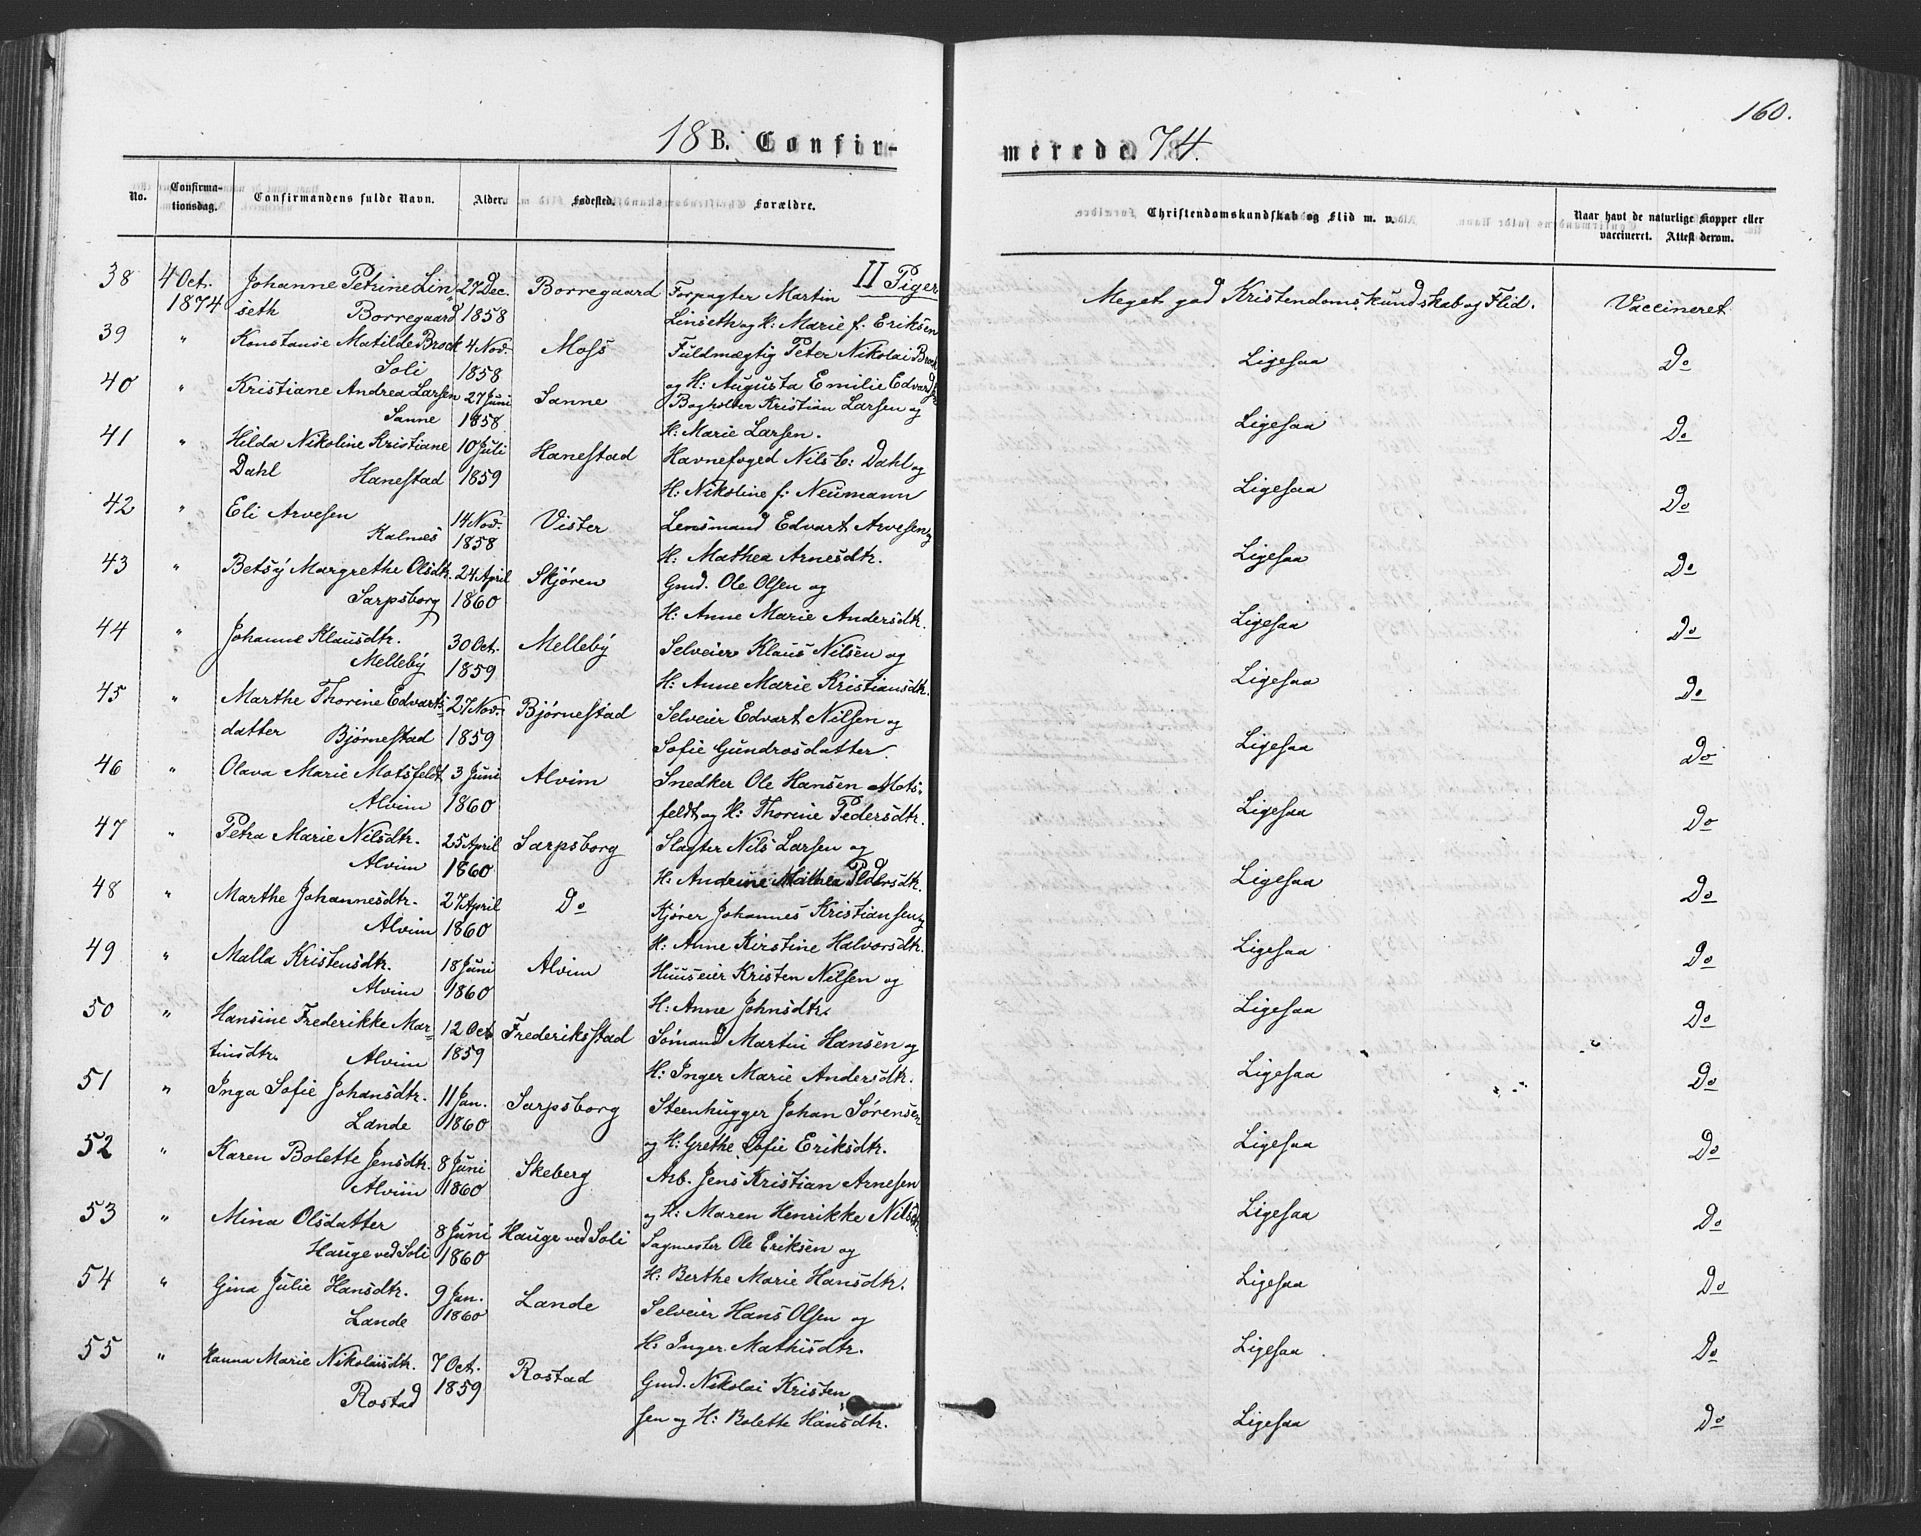 160.
18 B. Confir-
merede. 74.
No. Confirma-tionsdag. Confirmandens fulde Navn. Alder. Fødested. Forældre. Christendomskundskab og Flid m. v. Naar havt de naturlige Kopper eller vaccineret. Attest derom.
II Piger
38 4 Oct. Johanne Petrine Lin 27 Dec. Borregaard Forpagter Martin Meget god Kristendomskundskab og Flid. Vaccineret
1874 seth Borregaard 1858 Linseth og H: Marie f. Eriksen
39 " Konstanse Matilde Brock 4 Nov. Moss Fuldmægtig Peter Nikolai Brock Ligesaa Do
Soli 1858 og H: Augusta Emilie
40 " Kristiane Andrea Larsen 27 Juni Sanne Bogholder Kristian Larsen og Ligesaa Do
Sanne 1858 H: Marie Larsen.
41 " Hilda Nikoline Kristiane 10 Juli Hanestad Havnefoged Nils C: Dahl og Ligesaa Do
Dahl Hanestad 1859 H: Nikoline f: Neumann
42 " Eli Arvesen 14 Nov. Vister Lensmand Edvart Arvesen og Ligesaa Do
Kalnes 1858 H: Mathea Arnesdtr.
43 " Betsÿ Margrethe Olsdtr. 24 April Skjøren Gmd. Ole Olsen og Ligesaa Do
Sarpsborg 1860 H: Anne Marie Andersdtr.
44 " Johanne Klausdtr. 30 Oct. Mellebÿ Selveier Klaus Nilsen og Ligesaa Do
Mellebÿ 1859 H: Anne Marie Kristiansdtr.
45 " Marthe Thorine Edvarts= 27 Nov. Bjørnestad Selveier Edvart Nilsen og Ligesaa Do
datter Bjørnestad 1859 Sofie Gundrosdatter
46 " Olava Marie Motsfeldt 3 Juni Alvim Snedker Ole Hansen Mots= Ligesaa Do
Alvim 1860 feldt og H: Thorine Pedersdtr.
47 " Petra Marie Nilsdtr. 25 April Sarpsborg Slagter Nils Larsen og Ligesaa Do
Alvim 1860 H: Andrine Mathea Pedersdtr.
48 " Marthe Johannesdtr. 27 April Do Kjører Johannes Kristiansen og Ligesaa Do
Alvim 1860 H: Anne Kirstine Halvorsdtr.
49 " Malla Kristensdtr. 18 Juni Alvim Huuseier Kristen Nilsen og Ligesaa Do
Alvim 1860 H: Anne Johnsdtr.
50 " Hansine Frederikke Mar= 12 Oct Frederiksstad Sømand Martin Hansen og Ligesaa Do
tinsdtr. Alvim 1859 H: Inger Marie Andersdtr.
51 " Inga Sofie Johansdtr. 11 Jan. Sarpsborg Steenhugger Johan Sørensen Ligesaa Do
Lande 1860 og H: Grethe Sofie Eriksdtr.
52 " Karen Bolette Jensdtr. 8 Juni Skeberg Arb. Jens Kristian Arnesen Ligesaa Do
Alvim 1860 og H: Maren Henrikke Nilsdtr
53 " Mina Olsdatter 8 Juni Hauge ved Soli Sagmester Ole Eriksen og Ligesaa Do
Hauge ved Soli 1860 H: Berthe Marie Hansdtr.
54 " Gina Julie Hansdtr. 9 Jan. Lande Selveier Hans Olsen og Ligesaa Do
Lande 1860 H: Inger Mathisdtr.
55 " Hanna Marie Nikolaisdtr. 7 Oct. Rostad Gmd. Nikolai Kristen Ligesaa Do
Rostad 1859 sen og H: Bolette Hansdtr. Ligesaa Do